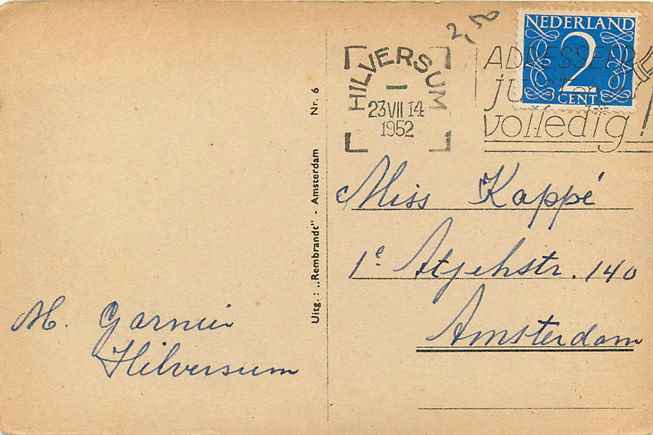 2,50
NEDERLAND
2
CENT
HILVERSUM
23 VII 14
1952
ADRESSEER
JUIST en
volledig!
Miss Kappé
1e Atjehstr. 140
Amsterdam
M. Garnier
Hilversum
Uitg.: „Rembrandt" - Amsterdam Nr. 6